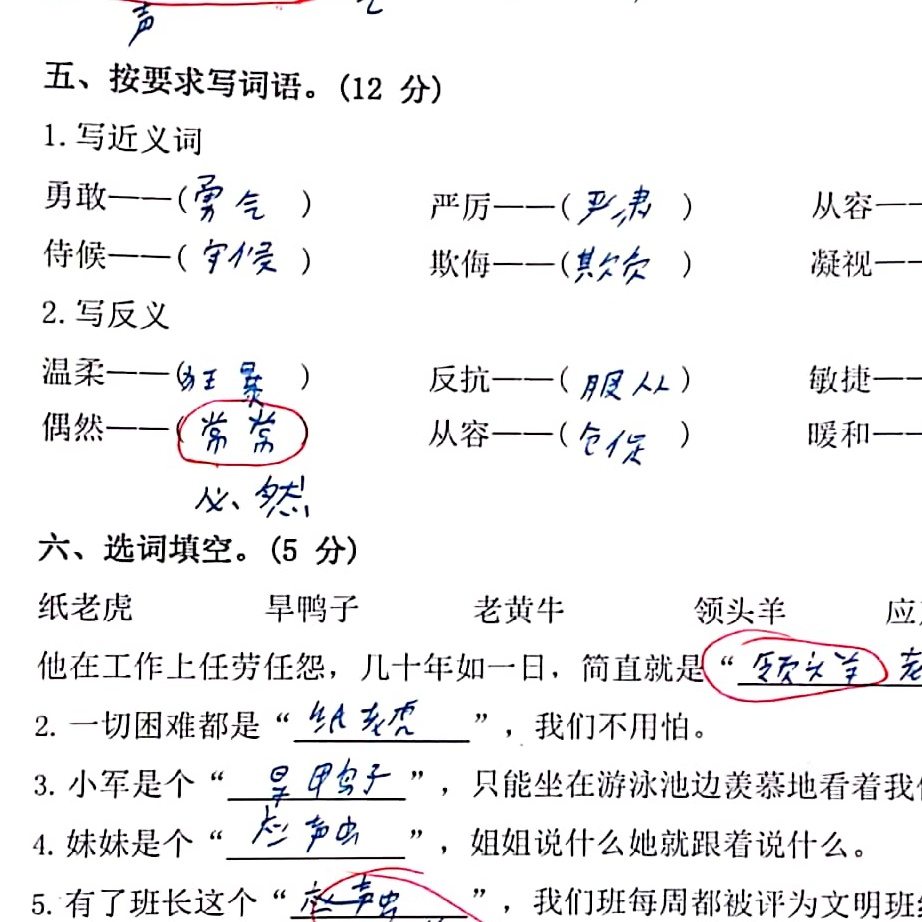 声
五、按要求写词语。(12 分)
1. 写近义词
勇敢——(勇气 ) 严厉——(严肃 ) 从容——
侍候——(守候 ) 欺侮——(欺负 ) 凝视——
2. 写反义
温柔——(狂暴 ) 反抗——(服从) 敏捷——
偶然——(常常) 从容——(仓促 ) 暖和——
必然
六、选词填空。(5 分)
纸老虎 旱鸭子 老黄牛 领头羊 应
他在工作上任劳任怨，几十年如一日，简直就是“领头羊 老
2. 一切困难都是“纸老虎”，我们不用怕。
3. 小军是个“旱鸭子”，只能坐在游泳池边羡慕地看着我
4. 妹妹是个“应声虫”，姐姐说什么她就跟着说什么。
5. 有了班长这个“应声虫”，我们班每周都被评为文明班